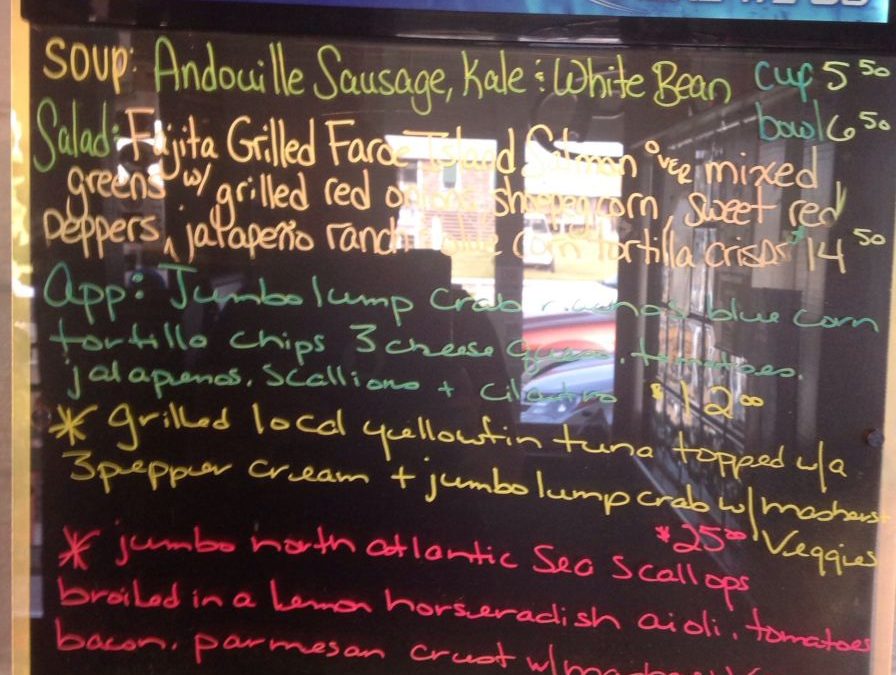 Soup: Andouille Sausage, Kale & White Bean cup 5 50
bowl 6 50
Salad: Fajita Grilled Faroe Island Salmon over mixed
greens w/ grilled red onions, shoepeg corn, sweet red
peppers, jalapeño ranch blue corn tortilla crisps $14 50
App: Jumbo lump crab nachos blue corn
tortilla chips 3 cheese queso, tomatoes,
jalapenos, scallions + cilantro $12 00
* grilled local yellowfin tuna topped w/a
3 pepper cream + jumbo lump crab w/ mashers
$25 00 Veggies
* jumbo north atlantic Sea Scallops
broiled in a Lemon horseradish aioli, tomatoes
bacon, parmesan crust w/